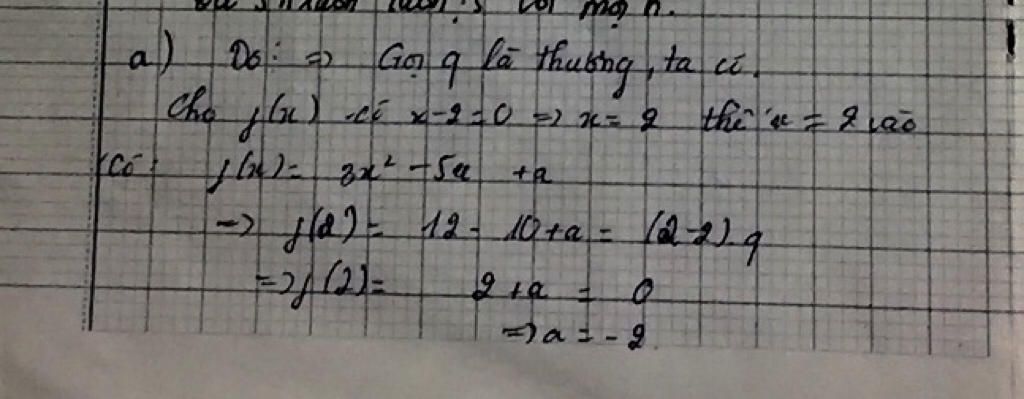 với mọi n.
a) Do: => Gọi q là thương, ta có.
Cho f(x) có x-2=0 => x = 2 thế x = 2 vào
Có: f(x) = 3x² - 5x + a
-> f(2) = 12 - 10 + a = (2-2).q
=> f(2) = 2 + a = 0
=> a = -2